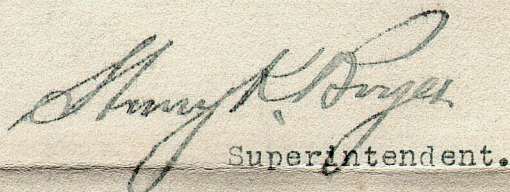 Henry K. Boyer
Superintendent.